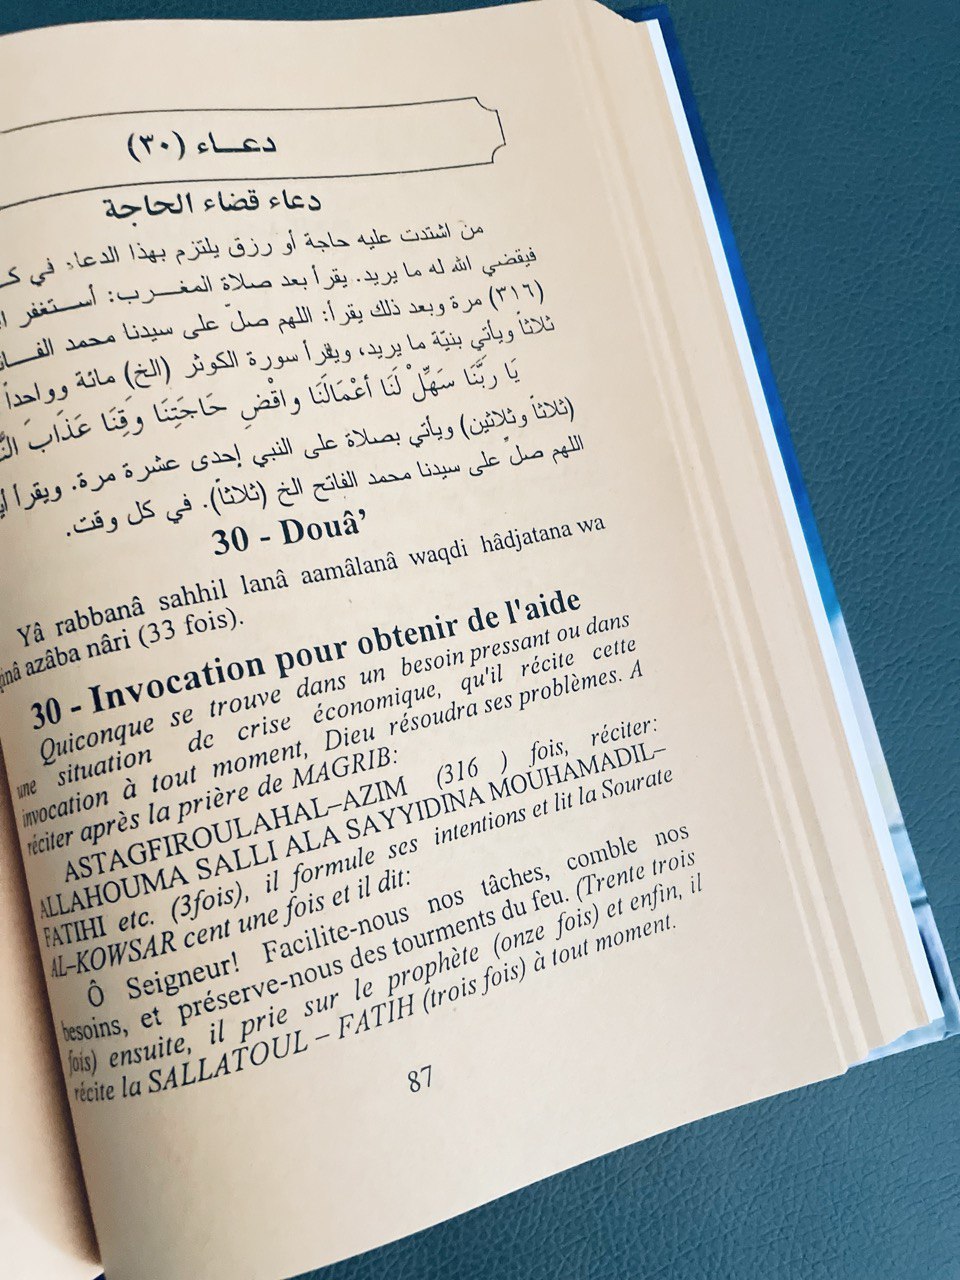 دعـــاء (٣٠)
دعاء قضاء الحاجة
من اشتدت عليه حاجة أو رزق يلتزم بهذا الدعاء في
فيقضي الله له ما يريد. يقرأ بعد صلاة المغـــرب: أســتغفر
(٣١٦) مرة وبعد ذلك يقرأ: اللهم صلّ على سيدنا محمد
ثلاثاً ويأتي بنيّة ما يريد، ويقرأ سورة الكوثر (الخ) مائة وواحداً
يَا رَبَّنَا سَهِّلْ لَنَا أعْمَالَنَا واقْضِ حَاجَتِنَا وَقِنَا عَذَابَ
(ثلاثاً وثلاثين) ويأتي بصلاة على النبي إحدى عشرة مرة. ويقرأ
اللهم صلِّ على سيدنا محمد الفاتح الخ (ثلاثاً). في كل وقت.
30 - Douâ’
Yâ rabbanâ sahhil lanâ aamâlanâ waqdi hâdjatana wa
azâba nâri (33 fois).
30 - Invocation pour obtenir de l'aide
Quiconque se trouve dans un besoin pressant ou dans
une situation de crise économique, qu'il récite cette
invocation à tout moment, Dieu résoudra ses problèmes. A
réciter après la prière de MAGRIB:
ASTAGFIROULAHAL–AZIM (316 ) fois, réciter:
ALLAHOUMA SALLI ALA SAYYIDINA MOUHAMADIL–
FATIHI etc. (3fois), il formule ses intentions et lit la Sourate
AL–KOWSAR cent une fois et il dit:
Ô Seigneur! Facilite-nous nos tâches, comble nos
besoins, et préserve-nous des tourments du feu. (Trente trois
fois) ensuite, il prie sur le prophète (onze fois) et enfin, il
récite la SALLATOUL – FATIH (trois fois) à tout moment.
87